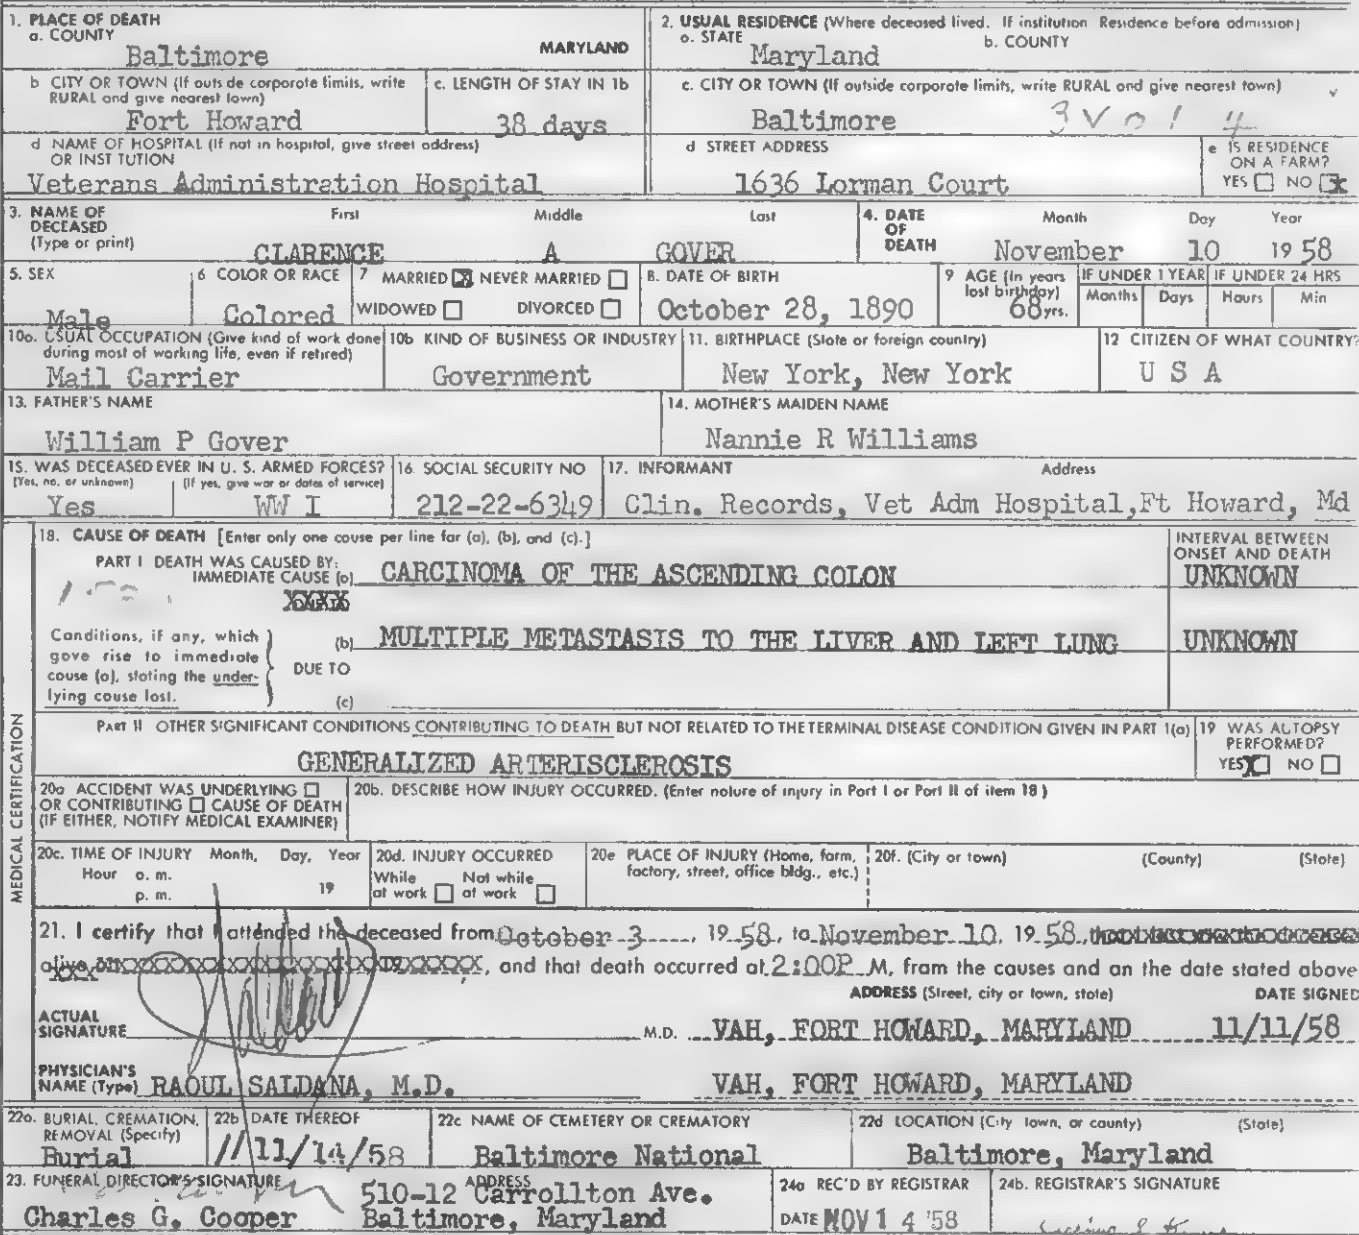 1. PLACE OF DEATH
a. COUNTY
Baltimore
MARYLAND
2. USUAL RESIDENCE (Where deceased lived. If institution Residence before admission)
o. STATE
Maryland
b. COUNTY
b CITY OR TOWN (If outside corporate limits, write RURAL and give nearest town)
Fort Howard
c. LENGTH OF STAY IN 1b
38 days
c. CITY OR TOWN (If outside corporate limits, write RURAL and give nearest town)
Baltimore
d NAME OF HOSPITAL (If not in hospital, give street address)
OR INSTITUTION
Veterans Administration Hospital
d STREET ADDRESS
1636 Lorman Court
e IS RESIDENCE ON A FARM?
YES NO X
3. NAME OF DECEASED
(Type or print)
First Middle Last
CLARENCE A GOVER
4. DATE OF DEATH
Month Day Year
November 10 19 58
5. SEX
Male
6 COLOR OR RACE
Colored
7 MARRIED X NEVER MARRIED
WIDOWED DIVORCED
8. DATE OF BIRTH
October 28, 1890
9 AGE (In years last birthday)
68 yrs.
IF UNDER 1 YEAR
Months Days
IF UNDER 24 HRS
Hours Min
10a. USUAL OCCUPATION (Give kind of work done during most of working life, even if retired)
Mail Carrier
10b KIND OF BUSINESS OR INDUSTRY
Government
11. BIRTHPLACE (State or foreign country)
New York, New York
12 CITIZEN OF WHAT COUNTRY?
U S A
13. FATHER'S NAME
William P Gover
14. MOTHER'S MAIDEN NAME
Nannie R Williams
15. WAS DECEASED EVER IN U. S. ARMED FORCES?
(Yes, no, or unknown) (If yes, give war or dates of service)
Yes WW I
16. SOCIAL SECURITY NO
212-22-6349
17. INFORMANT Address
Clin. Records, Vet Adm Hospital,Ft Howard, Md
MEDICAL CERTIFICATION
18. CAUSE OF DEATH [Enter only one cause per line for (a), (b), and (c).]
INTERVAL BETWEEN ONSET AND DEATH
PART I DEATH WAS CAUSED BY:
IMMEDIATE CAUSE (a) CARCINOMA OF THE ASCENDING COLON
UNKNOWN
XXXX
Conditions, if any, which gave rise to immediate cause (a), stating the underlying cause last.
(b) MULTIPLE METASTASIS TO THE LIVER AND LEFT LUNG
UNKNOWN
DUE TO
(c)
PART II OTHER SIGNIFICANT CONDITIONS CONTRIBUTING TO DEATH BUT NOT RELATED TO THE TERMINAL DISEASE CONDITION GIVEN IN PART 1(a)
GENERALIZED ARTERISCLEROSIS
19 WAS AUTOPSY PERFORMED?
YES X NO
20a ACCIDENT WAS UNDERLYING
OR CONTRIBUTING CAUSE OF DEATH
(IF EITHER, NOTIFY MEDICAL EXAMINER)
20b. DESCRIBE HOW INJURY OCCURRED. (Enter nature of injury in Part I or Part II of item 18)
20c. TIME OF INJURY Month, Day, Year
Hour a. m.
p. m.
19
20d. INJURY OCCURRED
While at work Not while at work
20e PLACE OF INJURY (Home, farm, factory, street, office bldg., etc.)
20f. (City or town) (County) (State)
21. I certify that I attended the deceased from October 3, 19 58, to November 10, 19 58,
alive on, and that death occurred at 2:00P M, from the causes and on the date stated above
ADDRESS (Street, city or town, state) DATE SIGNED
ACTUAL SIGNATURE M.D. VAH, FORT HOWARD, MARYLAND 11/11/58
PHYSICIAN'S NAME (Type) RAOUL SALDANA, M.D. VAH, FORT HOWARD, MARYLAND
22a. BURIAL, CREMATION, REMOVAL (Specify)
Burial
22b DATE THEREOF
11/14/58
22c NAME OF CEMETERY OR CREMATORY
Baltimore National
22d LOCATION (City town, or county) (State)
Baltimore, Maryland
23. FUNERAL DIRECTOR'S SIGNATURE
Charles G. Cooper
ADDRESS
510-12 Carrollton Ave.
Baltimore, Maryland
24a REC'D BY REGISTRAR
DATE NOV 14 '58
24b. REGISTRAR'S SIGNATURE